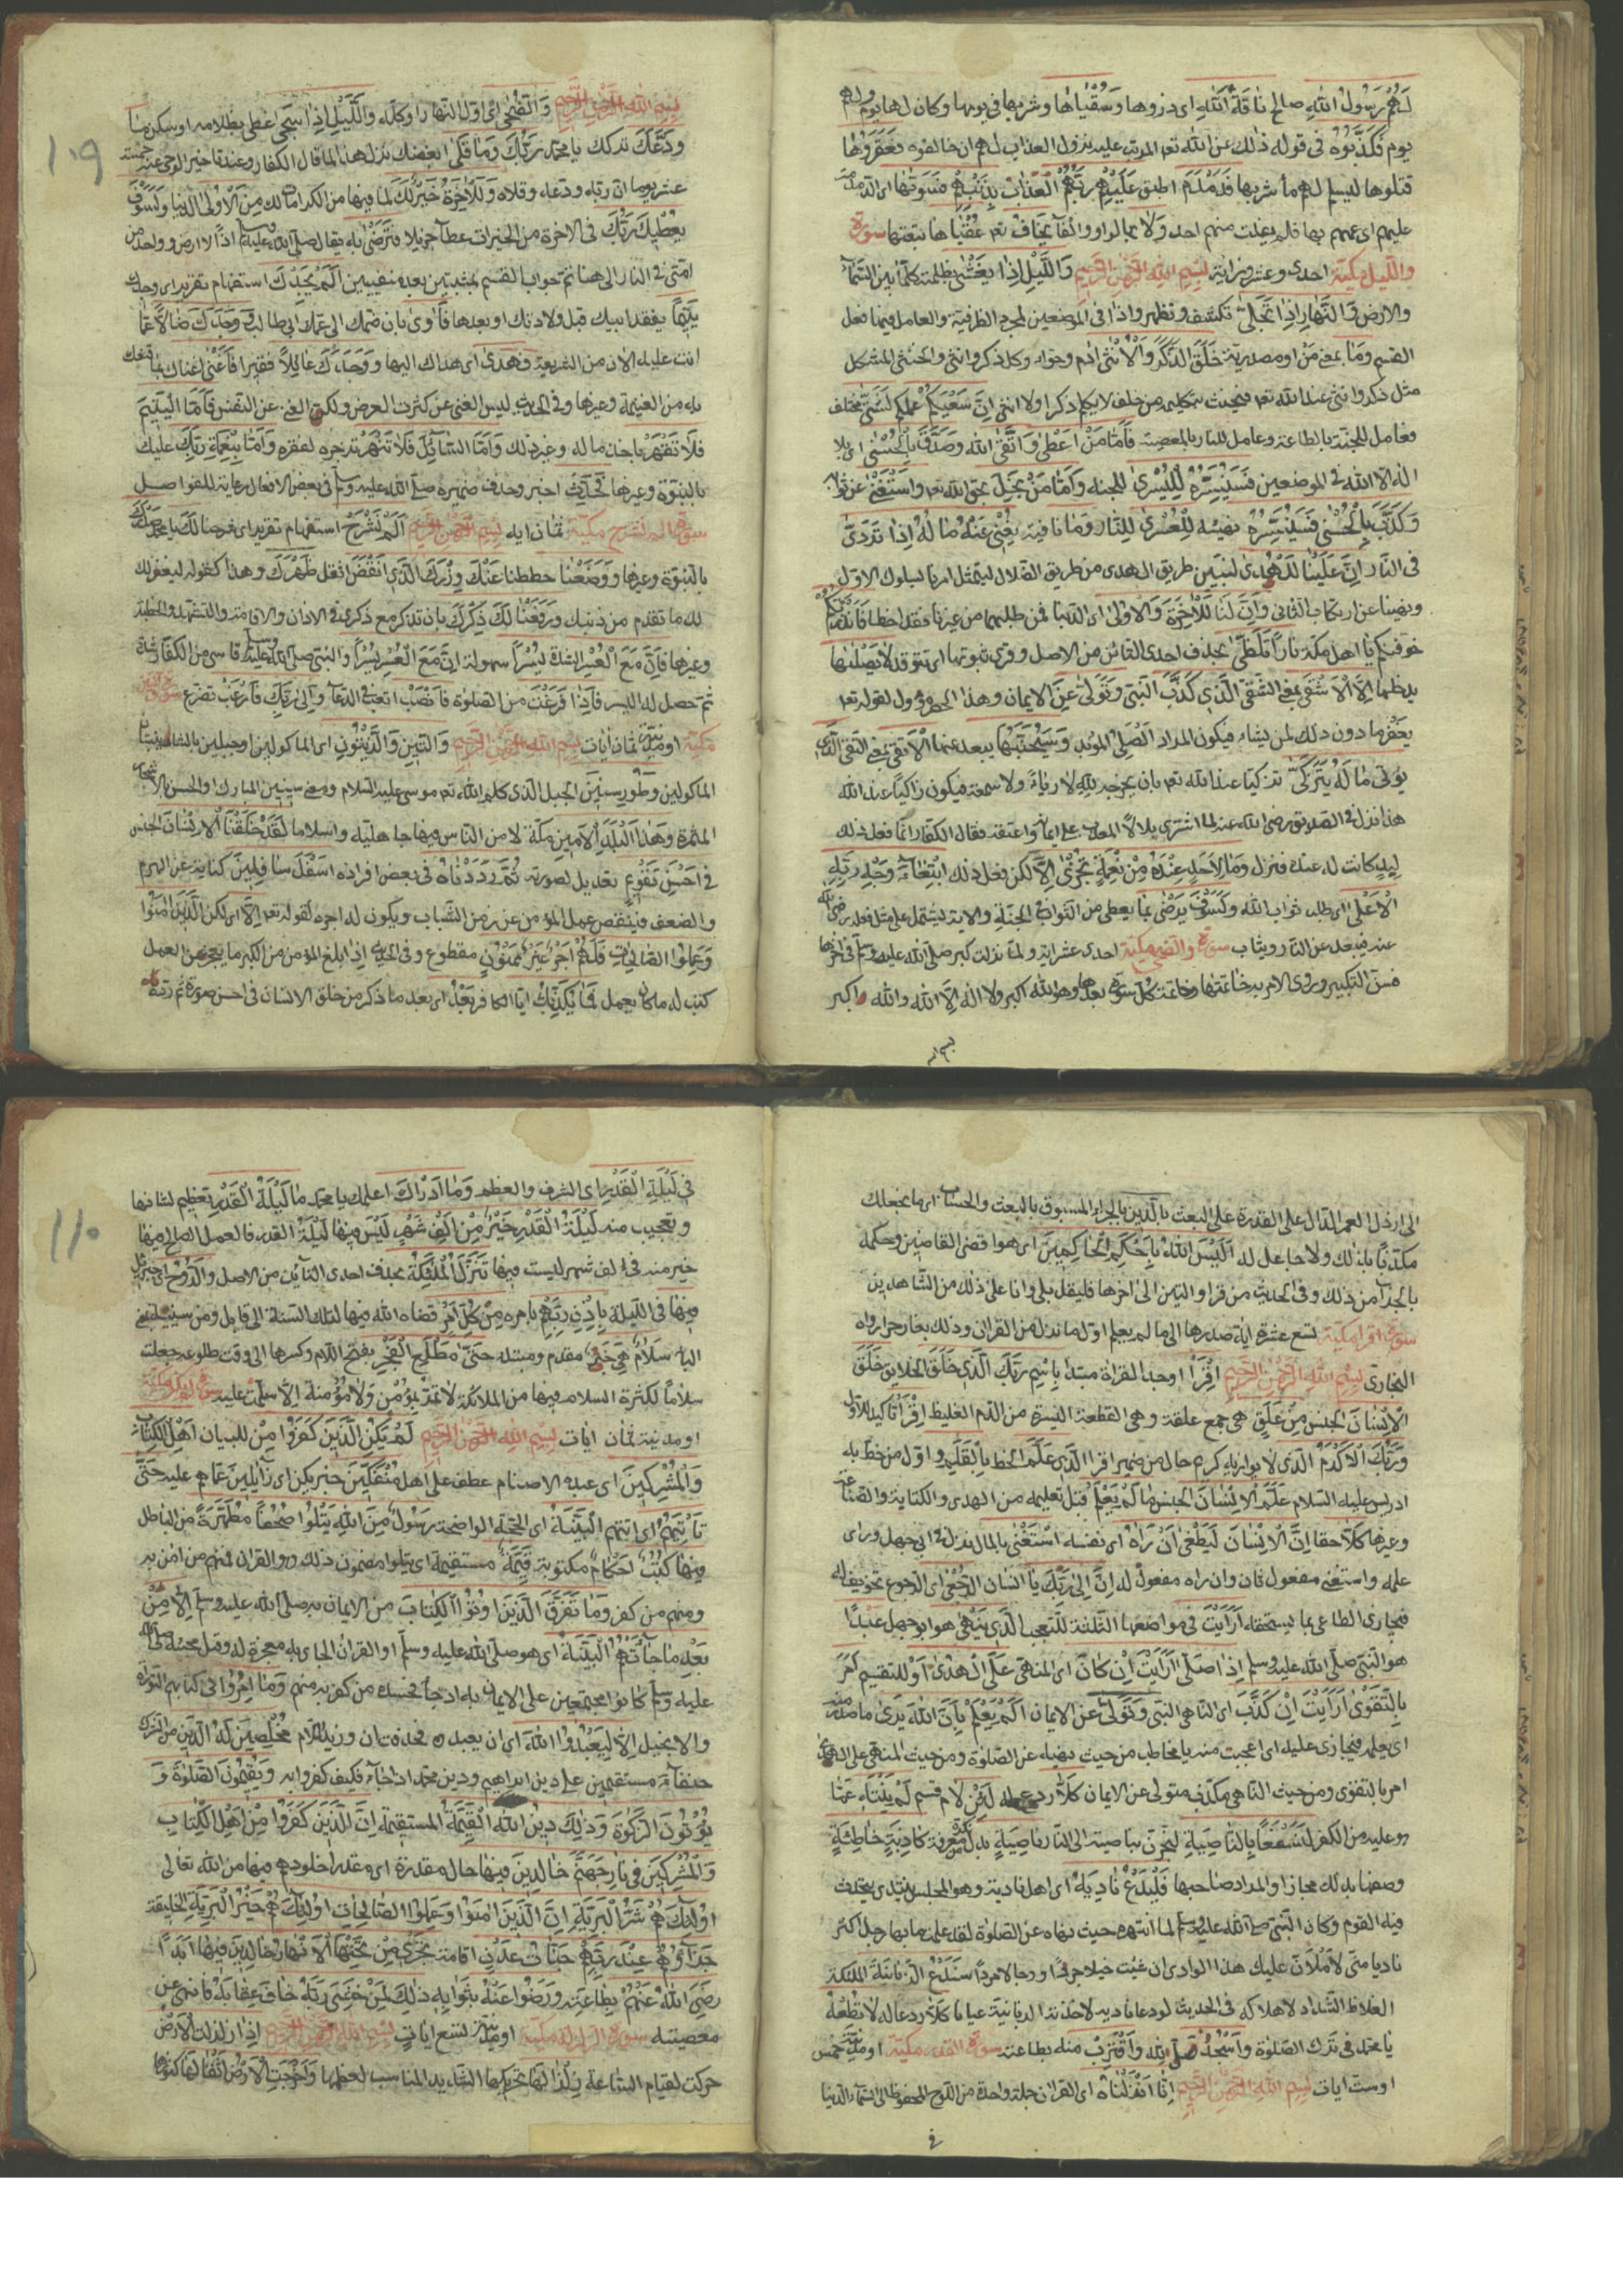 لَهُمْ رَسُولُ اللهِ صالح نَاقَةَ اللهِ اى ذروها وَسُقْيَاهَا وشربها فى يومها وكان لها يوم ولهم
يوم فَكَذَّبُوهُ فى قوله ذلك عن الله تعه المرتب عليه نزول العذاب لهم ان خالفوه فَعَقَرُوهَا
قتلوها ليسلم لهم ماء شربها فَدَمْدَمَ اطبق عَلَيْهِمْ رَبُّهُمْ العذاب بِذَنْبِهِمْ فَسَوَّيهَا اى الدمدمة
عليهم اى عمهم بها فلم يفلت منهم احد وَلَا بالواو والفاء يَخَافُ تعه عُقْبَاهَا تبعتها سورة
والليل مكية احدى وعشرون اية بِسْمِ اللهِ الرَّحْمٰنِ الرَّحِيمِ وَاللَّيْلِ اِذَا يَغْشٰى بظلمته كل ما بين السماء
والارض وَالنَّهَارِ اِذَا تَجَلّٰى تكشف وتظهر واذا فى الموضعين لمجرد الظرفية والعامل فيها فعل
القسم وَمَا بمعنى من او مصدرية خَلَقَ الذَّكَرَ وَالْاُنْثٰى ادم وحواء وكل ذكر وانثى والخنثى المشكل
مثل ذكر وانثى عند الله تعه فيحنث بتكليمه من حلف لا يكلم ذكرا ولا انثى اِنَّ سَعْيَكُمْ عملكم لَشَتّٰى مختلف
فعامل للجنة بالطاعة وعامل للنار بالمعصية فَاَمَّا مَنْ اَعْطٰى وَاتَّقٰى الله وَصَدَّقَ بِالْحُسْنٰى اى بلا
اله الا الله فى الموضعين فَسَنُيَسِّرُهُ لِلْيُسْرٰى للجنه وَاَمَّا مَنْ بَخِلَ بحق الله تعه وَاسْتَغْنٰى عن ثوابه
وَكَذَّبَ بِالْحُسْنٰى فَسَنُيَسِّرُهُ نهيئه لِلْعُسْرٰى للنار وَمَا نافية يُغْنِى عَنْهُ مَالُهُ اِذَا تَرَدّٰى
فى النار اِنَّ عَلَيْنَا لَلْهُدٰى لتبيين طريق الهدى من طريق الضلال ليتمثل امرنا بسلوك الاول
ونهينا عن ارتكاب الثانى وَاِنَّ لَنَا لَلْاٰخِرَةَ وَالْاُولٰى اى الدنيا فمن طلبهما من غيرنا فقد اخطا فَاَنْذَرْتُكُمْ
خوفتكم يا اهل مكة نَارًا تَلَظّٰى بحذف احدى التائين من الاصل وقرئ بثبوتها اى تتوقد لَا يَصْلٰيهَا
يدخلها اِلَّا الْاَشْقٰى بمعنى الشقى الَّذِى كَذَّبَ النبى وَتَوَلّٰى عن الايمان وهذا الحصر مؤول لقوله تعه
يغفر ما دون ذلك لمن يشاء فيكون المراد الصلى المؤبد وَسَيُجَنَّبُهَا يبعد عنها الْاَتْقٰى بمعنى التقى الَّذِى
يُؤْتِى مَالَهُ يَتَزَكّٰى تزكيا عند الله تعه بان يخرجه لله لا رياء ولا سمعة فيكون زاكيا عند الله
هذا نزل فى الصديق رضى الله عنه لما اشترى بلالا المعذب على ايمانه واعتقه فقال الكفار انما فعل ذلك
ليد كانت له عنده فنزل وَمَا لِاَحَدٍ عِنْدَهُ مِنْ نِعْمَةٍ تُجْزٰى اِلَّا لكن فعل ذلك ابْتِغَاءَ وَجْهِ رَبِّهِ
الْاَعْلٰى اى طلب ثواب الله وَلَسَوْفَ يَرْضٰى بما يعطى من الثواب فى الجنة والاية يشتمل على مثل فعله رضى الله
عنه فيبعد عن النار ويثاب سورة والضحى مكية احدى عشر اية ولما نزلت كبر صلى الله عليه وسلم فى اخرها
فسن التكبير وروى الامر به خاتمتها وخاتمة كل سورة بعدها وهو الله اكبر ولا اله الا الله والله اكبر
بسم
١٠٩
بِسْمِ اللهِ الرَّحْمٰنِ الرَّحِيمِ وَالضُّحٰى اى اول النهار او كله وَاللَّيْلِ اِذَا سَجٰى غطى بظلامه او سكن مَا
وَدَّعَكَ تركك يا محمد رَبُّكَ وَمَا قَلٰى ابغضك نزل هذا لما قال الكفار عند تاخير الوحى عنه خمسة
عشر يوما ان ربه ودعه وقلاه وَلَلْاٰخِرَةُ خَيْرٌ لَكَ لما فيها من الكرامات لك مِنَ الْاُولٰى الدنيا وَلَسَوْفَ
يُعْطِيكَ رَبُّكَ فى الاخرة من الخيرات عطاء جزيلا فَتَرْضٰى به فقال صلى الله عليه وسلم اذًا لا ارضى وواحد من
امتى فى النار الى هنا تم جواب القسم بمثبتين بعد منفيين اَلَمْ يَجِدْكَ استفهام تقرير اى وجدك
يَتِيمًا بفقد ابيك قبل ولادتك او بعدها فَاٰوٰى بان ضمك الى عمك ابى طالب وَوَجَدَكَ ضَالًّا عما
انت عليه الان من الشريعة فَهَدٰى اى هداك اليها وَوَجَدَكَ عَائِلًا فقيرا فَاَغْنٰى اغناك بما قنعك
به من الغنيمة وغيرها وفى الحديث ليس الغنى عن كثرة العرض ولكن الغنى عن النفس فَاَمَّا الْيَتِيمَ
فَلَا تَقْهَرْ باخذ ماله وغير ذلك وَاَمَّا السَّائِلَ فَلَا تَنْهَرْ تزجره لفقره وَاَمَّا بِنِعْمَةِ رَبِّكَ عليك
بالنبوة وغيرها فَحَدِّثْ اخبر وحذف ضميره صلى الله عليه وسلم فى بعض الافعال رعاية للفواصل
سورة الم نشرح مكية ثمان ايه بِسْمِ اللهِ الرَّحْمٰنِ الرَّحِيمِ اَلَمْ نَشْرَحْ استفهام تقرير اى شرحنا لَكَ يا محمد صَدْرَكَ
بالنبوة وغيرها وَوَضَعْنَا حططنا عَنْكَ وِزْرَكَ الَّذِى اَنْقَضَ اثقل ظَهْرَكَ وهذا كقوله ليغفر لك
الله ما تقدم من ذنبك وَرَفَعْنَا لَكَ ذِكْرَكَ بان تذكر مع ذكرى فى الاذان والاقامة والتشهد والخطبة
وغيرها فَاِنَّ مَعَ الْعُسْرِ الشدة يُسْرًا سهولة اِنَّ مَعَ الْعُسْرِ يُسْرًا والنبى صلى الله عليه وسلم قاسى من الكفار شدة
ثم حصل له اليسر فَاِذَا فَرَغْتَ من الصلوة فَانْصَبْ اتعب فى الدعاء وَاِلٰى رَبِّكَ فَارْغَبْ تضرع سورة والتين
مكية او مدنية ثمان ايات بِسْمِ اللهِ الرَّحْمٰنِ الرَّحِيمِ وَالتِّينِ وَالزَّيْتُونِ اى الماكولين او جبلين بالشام ينبتان
الماكولين وَطُورِ سِينِينَ الجبل الذى كلم الله تعه موسى عليه السلام ومعنى سينين المبارك او الحسن بالاشجار
المثمرة وَهٰذَا الْبَلَدِ الْاَمِينِ مكة لامن الناس فيها جاهلية واسلاما لَقَدْ خَلَقْنَا الْاِنْسَانَ الجنس
فِى اَحْسَنِ تَقْوِيمٍ تعديل لصورته ثُمَّ رَدَدْنَاهُ فى بعض افراده اَسْفَلَ سَافِلِينَ كناية عن الهرم
والضعف فينقص عمل المؤمن عن زمن الشباب ويكون له اجره لقوله تعه اِلَّا اى لكن الَّذِينَ اٰمَنُوا
وَعَمِلُوا الصَّالِحَاتِ فَلَهُمْ اَجْرٌ غَيْرُ مَمْنُونٍ مقطوع وفى الحديث اذا بلغ المؤمن من الكبر ما يعجز عن العمل
كتب له ما كان يعمل فَمَا يُكَذِّبُكَ ايها الكافر بَعْدُ اى بعد ما ذكر من خلق الانسان فى احسن صورة ثم رده
الى ارذل العمر الدال على القدرة على البعث بِالدِّينِ بالجزاء المسبوق بالبعث والحساب اى ما يجعلك
مكذبا بذلك ولا جاعل له اَلَيْسَ اللهُ بِاَحْكَمِ الْحَاكِمِينَ اى هو اقضى القاضين وحكمه
بالجزاء من ذلك وفى الحديث من قرا والتين الى اخرها فليقل بلى وانا على ذلك من الشاهدين
سورة اقرا مكية تسع عشرة اية صدرها الى ما لم يعلم اول ما نزل من القران وذلك بغار حرا رواه
البخارى بِسْمِ اللهِ الرَّحْمٰنِ الرَّحِيمِ اِقْرَاْ اوجد القراة مبتدا بِاسْمِ رَبِّكَ الَّذِى خَلَقَ الخلايق خَلَقَ
الْاِنْسَانَ الجنس مِنْ عَلَقٍ هى جمع علقة وهى القطعة اليسيرة من الدم الغليظ اِقْرَاْ تاكيد للاول
وَرَبُّكَ الْاَكْرَمُ الذى لا يوازيه كريم حال من ضمير اقرا الَّذِى عَلَّمَ الخط بِالْقَلَمِ واول من خط به
ادريس عليه السلام عَلَّمَ الْاِنْسَانَ الجنس مَا لَمْ يَعْلَمْ قبل تعليمه من الهدى والكتابة والصناعة
وغيرها كَلَّا حقا اِنَّ الْاِنْسَانَ لَيَطْغٰى اَنْ رَاٰهُ اى نفسه اسْتَغْنٰى بالمال نزل فى ابى جهل وراى
علمه واستغنى مفعول ثان وان راه مفعول له اِنَّ اِلٰى رَبِّكَ يا انسان الرُّجْعٰى اى الرجوع تخويف له
فيجازى الطاغى بما يستحقه اَرَاَيْتَ فى مواضعها الثلثة للتعجب الَّذِى يَنْهٰى هو ابو جهل عَبْدًا
هو النبى صلى الله عليه وسلم اِذَا صَلّٰى اَرَاَيْتَ اِنْ كَانَ اى المنهى عَلَى الْهُدٰى اَوْ للتقسيم اَمَرَ
بِالتَّقْوٰى اَرَاَيْتَ اِنْ كَذَّبَ اى الناهى النبى وَتَوَلّٰى عن الايمان اَلَمْ يَعْلَمْ بِاَنَّ اللهَ يَرٰى ما صدر منه
اى يعلمه فيجازى عليه اى اعجب منه يا مخاطب من حيث نهيه عن الصلوة ومن حيث المنهى على الهدى
امر بالتقوى ومن حيث الناهى مكذب متولى عن الايمان كَلَّا ردع له لَئِنْ لام قسم لَمْ يَنْتَهِ عما
هو عليه من الكفر لَنَسْفَعًا بِالنَّاصِيَةِ لنجرن بناصيته الى النار نَاصِيَةٍ بدل نكرة من معرفة كَاذِبَةٍ خَاطِئَةٍ
وصفها بذلك مجازا والمراد صاحبها فَلْيَدْعُ نَادِيَهُ اى اهل ناديه وهو المجلس ينتدى يتحدث
فيه القوم وكان النبى صلى الله عليه وسلم لما انتهره حيث نهاه عن الصلوة لقد علمت ما بها رجل اكثر
ناديا منى لاملان عليك هذا الوادى ان شئت خيلا جردا ورجالا مردا سَنَدْعُ الزَّبَانِيَةَ الملئكة
الغلاظ الشداد لاهلاكه فى الحديث لو دعا ناديه لاخذته الزبانية عيانا كَلَّا ردعا له لَا تُطِعْهُ
يا محمد فى ترك الصلوة وَاسْجُدْ صل لله وَاقْتَرِبْ منه بطاعته سورة القدر مكية او مدنية خمس
او ست ايات بِسْمِ اللهِ الرَّحْمٰنِ الرَّحِيمِ اِنَّا اَنْزَلْنَاهُ اى القران جملة واحدة من اللوح المحفوظ الى السماء الدنيا
فى
١١٠
فِى لَيْلَةِ الْقَدْرِ اى الشرف والعظم وَمَا اَدْرٰيكَ اعلمك يا محمد مَا لَيْلَةُ الْقَدْرِ تعظيم لشانها
وتعجيب منه لَيْلَةُ الْقَدْرِ خَيْرٌ مِنْ اَلْفِ شَهْرٍ ليس فيها ليلة القدر فالعمل الصالح فيها
خير منه فى الف شهر ليست فيها تَنَزَّلُ الْمَلٰئِكَةُ بحذف احدى التائين من الاصل وَالرُّوحُ اى جبريل
فِيهَا فى الليلة بِاِذْنِ رَبِّهِمْ بامره مِنْ كُلِّ اَمْرٍ قضاه الله فيها لتلك السنة الى قابل ومن سببية بمعنى
الباء سَلَامٌ هِىَ خبر مقدم ومبتدا حَتّٰى مَطْلَعِ الْفَجْرِ بفتح اللام وكسرها الى وقت طلوعه جعلت
سلاما لكثرة السلام فيها من الملائكة لا تمر بمؤمن ولا مؤمنة الا سلمت عليه سورة لم يكن مكية
او مدنية ثمان ايات بِسْمِ اللهِ الرَّحْمٰنِ الرَّحِيمِ لَمْ يَكُنِ الَّذِينَ كَفَرُوا مِنْ للبيان اَهْلِ الْكِتَابِ
وَالْمُشْرِكِينَ اى عبدة الاصنام عطف على اهل مُنْفَكِّينَ خبر يكن اى زائلين عما هم عليه حَتّٰى
تَاْتِيَهُمُ اى اتتهم الْبَيِّنَةُ اى الحجة الواضحة رَسُولٌ مِنَ اللهِ يَتْلُوا صُحُفًا مُطَهَّرَةً من الباطل
فِيهَا كُتُبٌ احكام مكتوبة قَيِّمَةٌ مستقيمة اى يتلوا مضمون ذلك وهو القران فمنهم من امن به
ومنهم من كفر وَمَا تَفَرَّقَ الَّذِينَ اُوتُوا الْكِتَابَ من الايمان به صلى الله عليه وسلم اِلَّا مِنْ
بَعْدِ مَا جَاءَتْهُمُ الْبَيِّنَةُ اى هو صلى الله عليه وسلم او القران الجاى به معجزة له وقبل مجيئه صلى الله
عليه وسلم كانوا مجتمعين على الايمان به اذ جاء فحسده من كفر به منهم وَمَا اُمِرُوا فى كتابهم التوراة
والانجيل اِلَّا لِيَعْبُدُوا اللهَ اى ان يعبدوه فحذفت ان وزيدت اللام مُخْلِصِينَ لَهُ الدِّينَ من الشرك
حُنَفَاءَ مستقيمين على دين ابراهيم ودين محمد اذا جاء فكيف كفروا به وَيُقِيمُونَ الصَّلٰوةَ وَ
يُؤْتُونَ الزَّكٰوةَ وَذٰلِكَ دِينُ الملة الْقَيِّمَةِ المستقيمة اِنَّ الَّذِينَ كَفَرُوا مِنْ اَهْلِ الْكِتَابِ
وَالْمُشْرِكِينَ فِى نَارِ جَهَنَّمَ خَالِدِينَ فِيهَا حال مقدرة اى مقدرا خلودهم فيها من الله تعالى
اُولٰئِكَ هُمْ شَرُّ الْبَرِيَّةِ اِنَّ الَّذِينَ اٰمَنُوا وَعَمِلُوا الصَّالِحَاتِ اُولٰئِكَ هُمْ خَيْرُ الْبَرِيَّةِ الخليقة
جَزَاؤُهُمْ عِنْدَ رَبِّهِمْ جَنَّاتُ عَدْنٍ اقامة تَجْرِى مِنْ تَحْتِهَا الْاَنْهَارُ خَالِدِينَ فِيهَا اَبَدًا
رَضِىَ اللهُ عَنْهُمْ بطاعته وَرَضُوا عَنْهُ بثوابه ذٰلِكَ لِمَنْ خَشِىَ رَبَّهُ خاف عقابه فانتهى عن
معصيته سورة الزلزلة مكية او مدنية تسع ايات بِسْمِ اللهِ الرَّحْمٰنِ الرَّحِيمِ اِذَا زُلْزِلَتِ الْاَرْضُ
حركت لقيام الساعة زِلْزَالَهَا تحريكها الشديد المناسب لعظمها وَاَخْرَجَتِ الْاَرْضُ اَثْقَالَهَا كنوزها